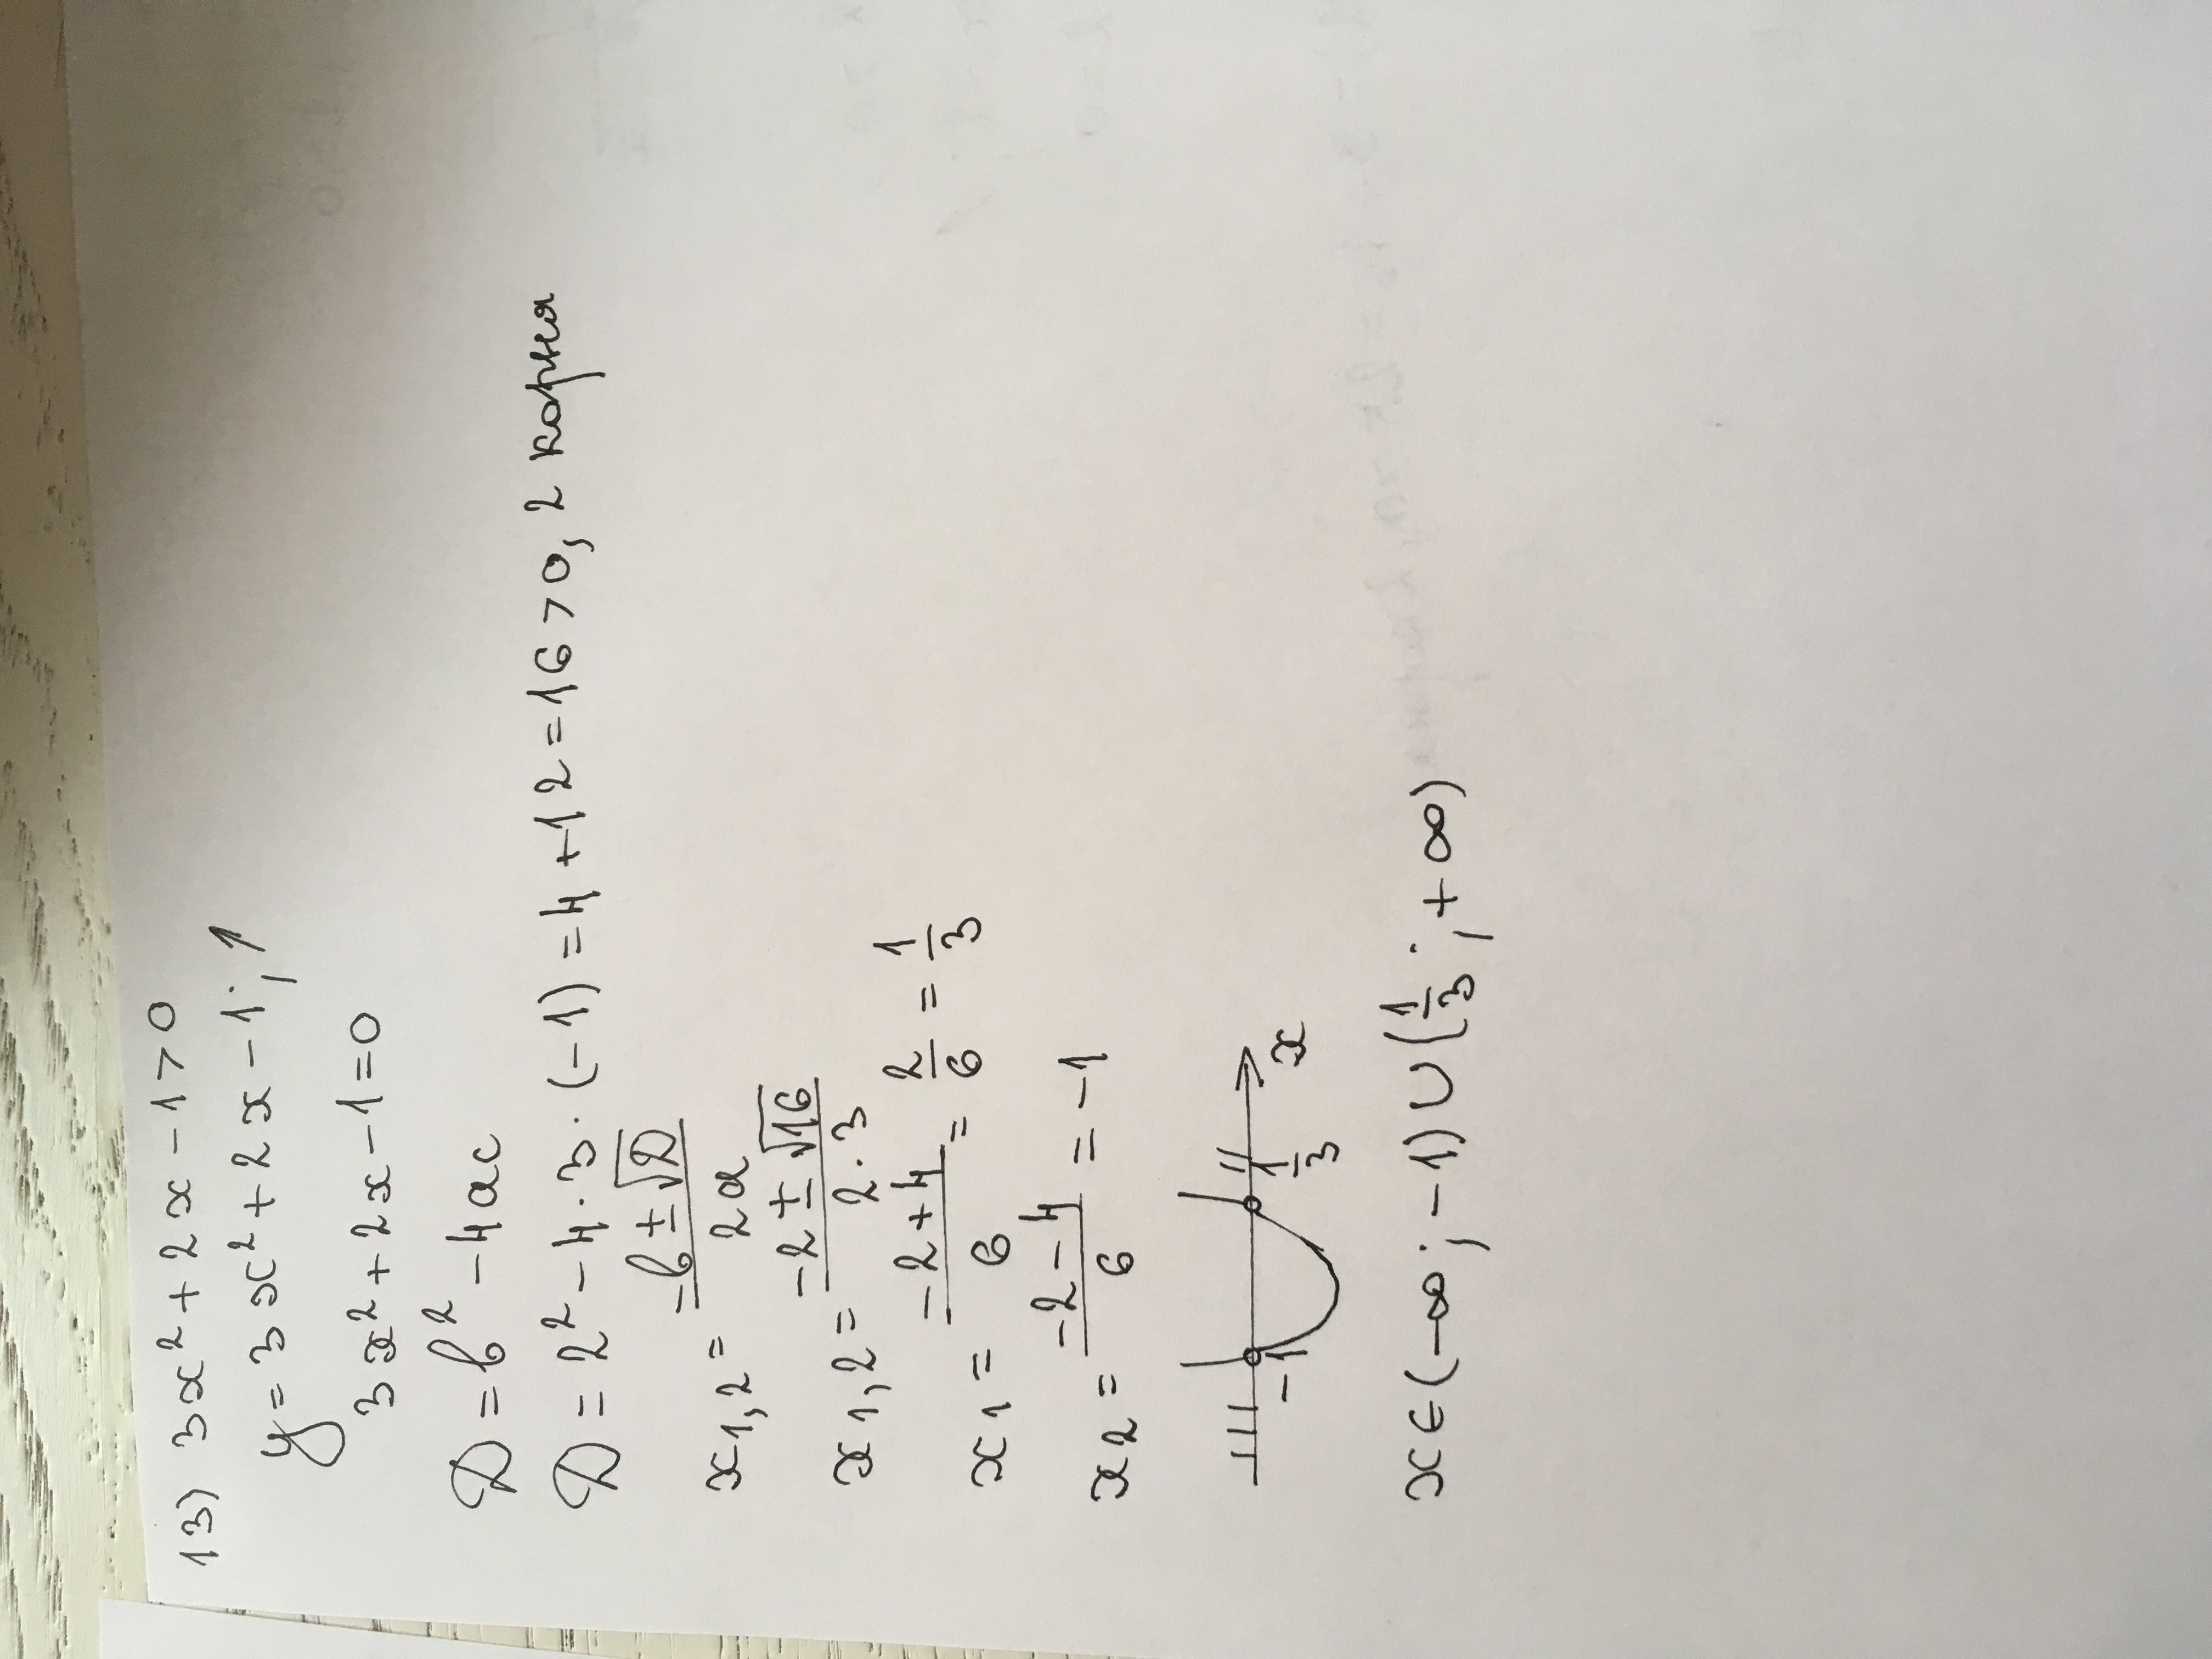 13) 3x² + 2x - 1 > 0
y = 3x² + 2x - 1; ↑
3x² + 2x - 1 = 0
D = b² - 4ac
D = 2² - 4 · 3 · (-1) = 4 + 12 = 16 > 0, 2 корня
x1,2 = (-b ± √D) / 2a
x1,2 = (-2 ± √16) / 2 · 3
x1 = (-2 + 4) / 6 = 2/6 = 1/3
x2 = (-2 - 4) / 6 = -1
-1 1/3 x
x ∈ (-∞; -1) ∪ (1/3; +∞)